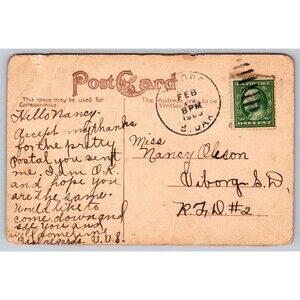 Post Card
This space may be used for
Correspondence
The Address only to be
Written
FEB
8PM
S. DAK
ONE CENT
Hello Nancy.
Accept my thanks
for the pretty
Postal you sent
me. I am O.K.
and hope you
are the same.
Would like to
come down and
see you and
will sometime
Best regards, V.V.S.
Miss
Nancy Oleson
Viborg S.D.
R.F.D. #2